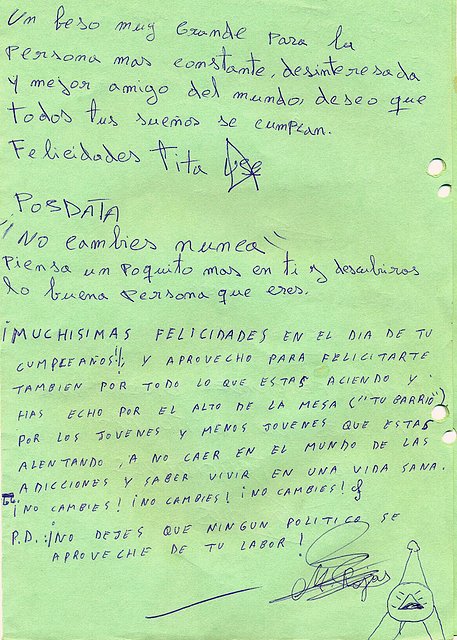 Un beso muy Grande para la
Persona mas constante, desinteresada
y mejor amigo del mundo, deseo que
todos tus sueños se cumplan.
Felicidades Tita
POSDATA
"No cambies nunca"
Piensa un poquito mas en ti y descubriras
lo buena persona que eres.
¡MUCHISIMAS FELICIDADES EN EL DIA DE TU
CUMPLEAÑOS!!, Y APROVECHO PARA FELICITARTE
TAMBIEN POR TODO LO QUE ESTAS ACIENDO Y
HAS ECHO POR EL ALTO DE LA MESA ("TU BARRIO")
POR LOS JOVENES Y MENOS JOVENES QUE ESTAS
ALENTANDO, A NO CAER EN EL MUNDO DE LAS
ADICCIONES Y SABER VIVIR EN UNA VIDA SANA.
¡NO CAMBIES! ¡NO CAMBIES! ¡NO CAMBIES!
P.D.: ¡NO DEJES QUE NINGUN POLITICO SE
APROVECHE DE TU LABOR!
Rojas